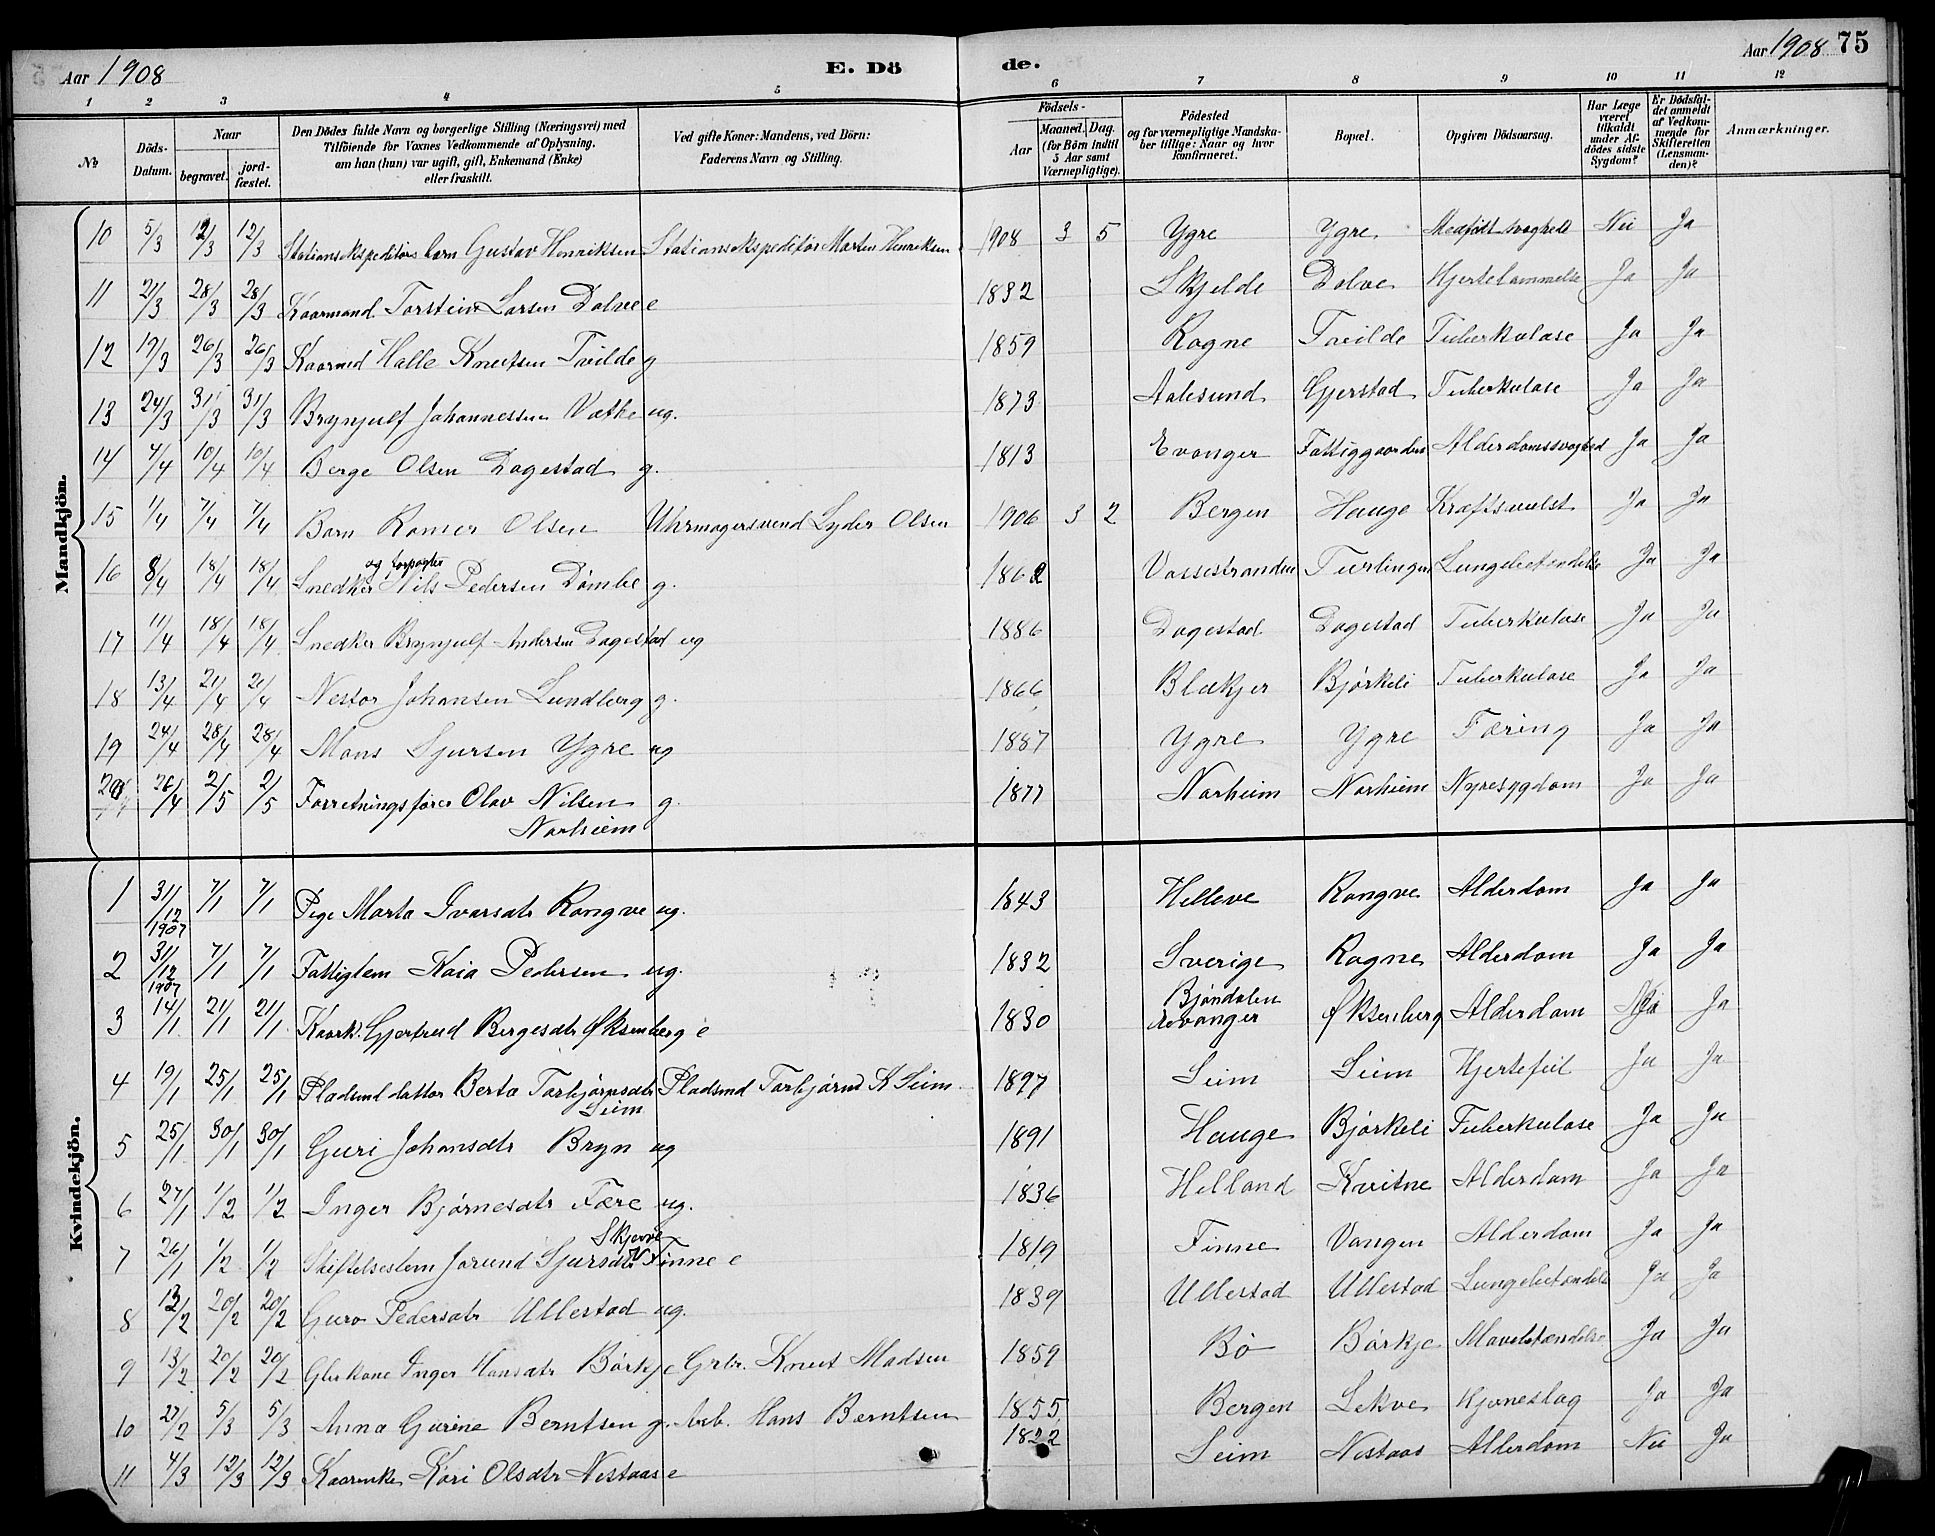 Aar 1908 E. Dö de. Aar 1908 75
1 2 3 4 5 6 7 8 9 10 11 12
№
Döds-Datum.
Naar
begravet. jord-fæstet.
Den Dödes fulde Navn og borgerlige Stilling (Næringsvei) med
Tilföiende for Voxnes Vedkommende af Oplysning,
om han (hun) var ugift, gift, Enkemand (Enke)
eller fraskilt.
Ved gifte Koner: Mandens, ved Börn:
Faderens Navn og Stilling.
Födsels-
Aar Maaned. Dag.
(for Börn indtil 5 Aar samt Værnepligtige).
Födested
og for værnepligtige Mandska-
ber tillige: Naar og hvor
konfirmeret.
Bopæl.
Opgiven Dödsaarsag.
Har Læge været tilkaldt under Afdödes sidste Sygdom?
Er Dödsfaldet anmeldt af Vedkommende for Skifteretten (Lensmanden)?
Anmærkninger.
Mandkjön.
10 5/3 12/3 12/3 Stationsekspeditørs barn Gustav Henriksen Stationsekspeditør Morten Henriksen 1908 3 5 Ygre Ygre Medfødt svaghed Nei Ja
11 21/3 28/3 28/3 Kaarmand Torstein Larsen Dolve e 1832 Skjelde Dolve Hjertelammelse Ja Ja
12 19/3 26/3 26/3 Kaarmd Halle Knutsen Tvilde g 1859 Rogne Tvilde Tuberkulose Ja Ja
13 24/3 31/3 31/3 Brynjulf Johannessen Vethe ug. 1873 Aalesund Gjerstad Tuberkulose Ja Ja
14 4/4 10/4 10/4 Berge Olsen Dagestad g. 1813 Evanger Fattiggaarden Alderdomssvaghed Ja Ja
15 1/4 7/4 7/4 Barn Romer Olsen Uhrmagersvend Lyder Olsen 1906 3 2 Bergen Hauge Kræftsvulst Ja Ja
16 8/4 18/4 18/4 Snedker og forpagter Nils Pedersen Dømbe g. 1862 Vossestranden Turlingen Lungebetændelse Ja Ja
17 11/4 18/4 18/4 Snedker Brynjulf Andersen Dagestad ug 1886 Dagestad Dagestad Tuberkulose Ja Ja
18 13/4 21/4 21/4 Nestor Johansen Lundberg g. 1866 Blakjer Bjørkeli Tuberkulose Ja Ja
19 24/4 28/4 28/4 Mons Sjursen Ygre ug 1887 Ygre Ygre Tæring Ja Ja
20 26/4 2/5 2/5 Forretningsfører Olav Nilsen g. 1877 Norheim Norheim Nyresygdom Ja Ja
Norheim
Kvindekjön.
1 31/12 1907 7/1 7/1 Pige Marta Ivarsdtr Rongve ug. 1843 Helleve Rongve Alderdom Ja Ja
2 31/12 1907 7/1 7/1 Fattiglem Kaia Pedersen ug. 1832 Sverige Rogne Alderdom Ja Ja
3 14/1 21/1 21/1 Kaark. Gjertrud Bergesdtr Øksenberg e 1830 Bjøndalen Evanger Øksenberg Alderdom Ja
4 19/1 25/1 25/1 Pladsmd datter Berta Torbjørnsdtr Seim Pladsmd Torbjørn K Seim 1897 Seim Seim Hjertefeil Ja Ja
5 25/1 30/1 30/1 Guri Johansdtr Bryn ug 1891 Hauge Bjørkeli Tuberkulose Ja Ja
6 27/1 1/2 1/2 Inger Bjørnesdtr Fære ug. 1836 Helland Kvitne Alderdom Ja Ja
7 26/1 1/2 1/2 Stiftelseslem Jorund Sjursdtr Skjerve Finne e 1819 Finne Vangen Alderdom Ja Ja
8 12/2 20/2 20/2 Guro Pedersdtr Ullestad ug. 1839 Ullestad Ullestad Lungebetændelse Ja Ja
9 13/2 20/2 20/2 Gbrkone Inger Hansdtr Børkje Grbr. Knut Madsen 1859 Bø Børkje Mavebetændelse Ja Ja
10 27/2 5/3 5/3 Anna Gurine Berntsen g. Arb. Hans Berntsen 1855 Bergen Lekve Hjerneslag Ja Ja
11 4/3 12/3 12/3 Kaarenke Kari Olsdtr Nestaas e 1822 Seim Nestaas Alderdom Nei Ja